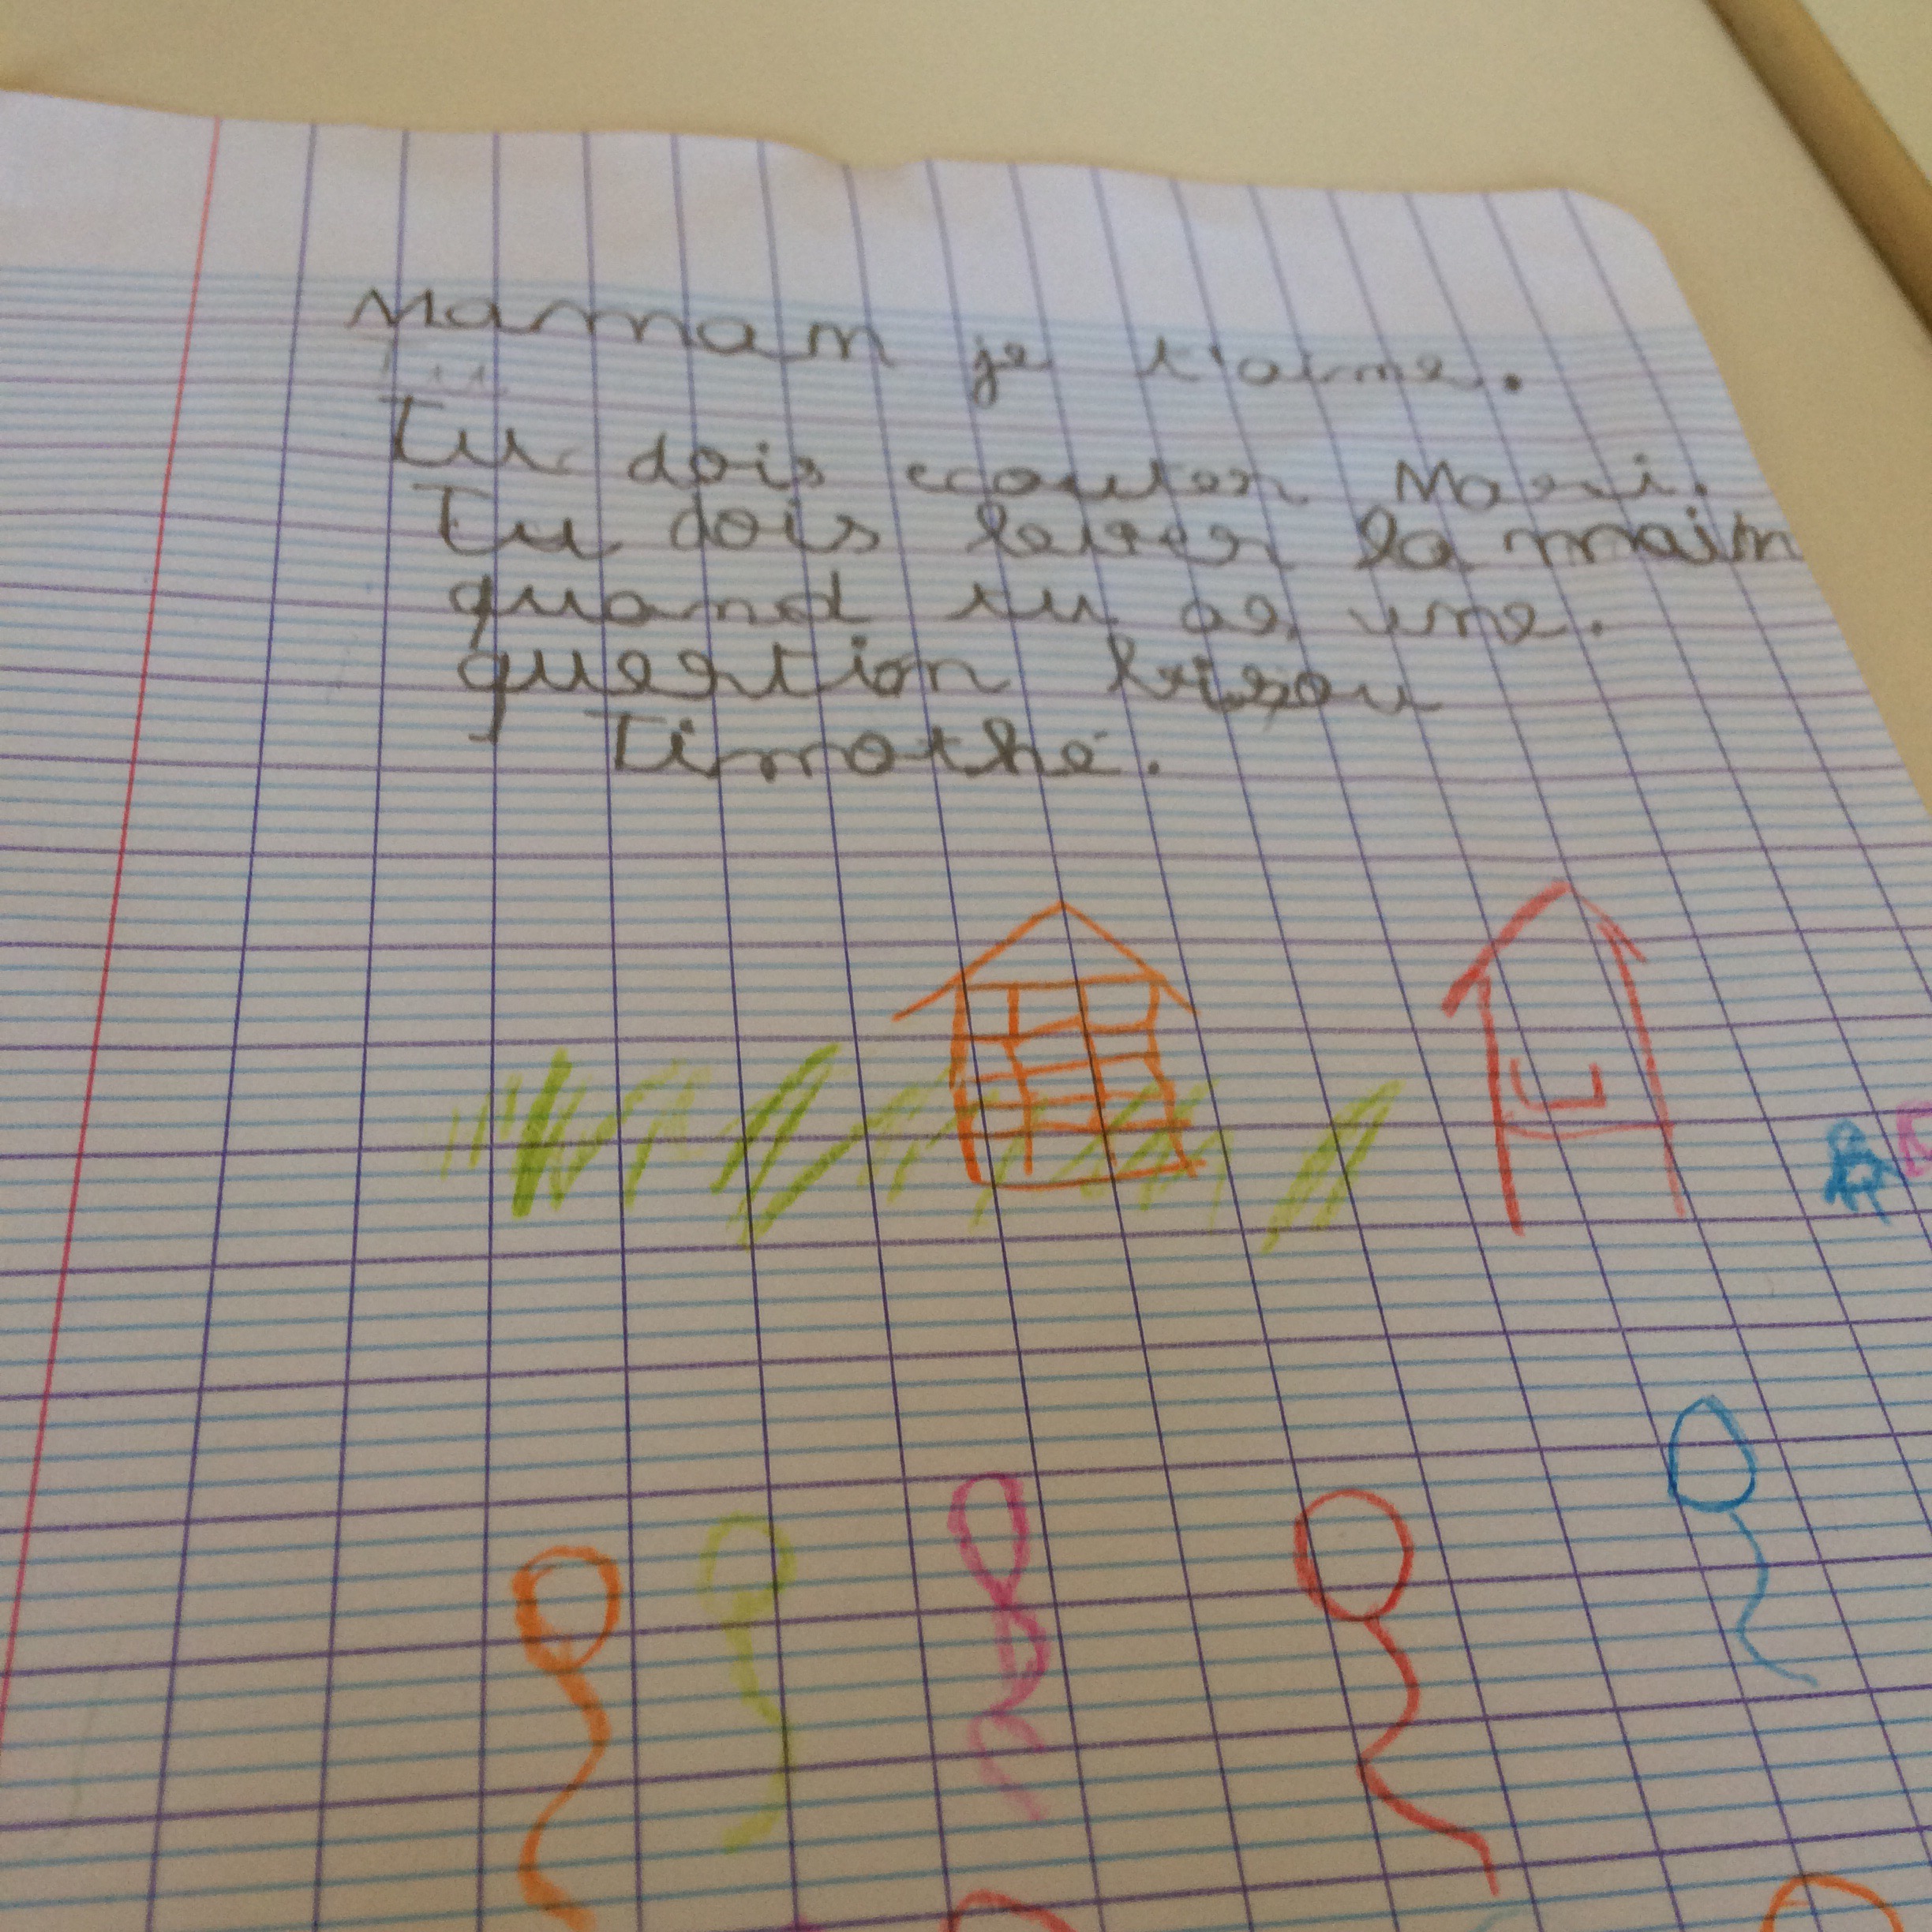 Maman je t'aime.
Tu dois ecouter
Tu dois lever la main
quand tu as une.
question
Timothé.